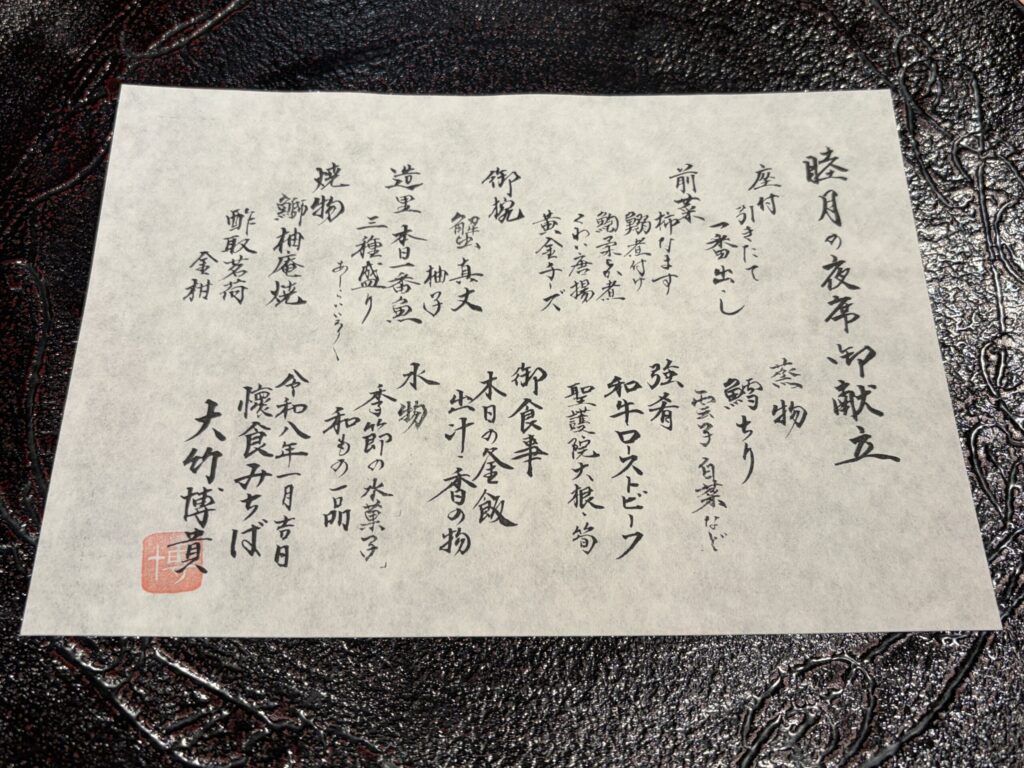 睦月の夜席御献立
座付
引きたて
一番出し
前菜
柿なます
鰯煮付け
鮑柔か煮
くわい唐揚
黄金チーズ
御椀
蟹真丈
柚子
造里 本日一番魚
三種盛り
あしらいいろ〱
焼物
鰤柚庵焼
酢取茗荷
金柑
蒸物
鱈ちり
雲子 白菜など
強肴
和牛ローストビーフ
聖護院大根・筍
御食事
本日の釜飯
出汁・香の物
水物
季節の水菓子
和もの一品
令和八年一月吉日
懐食みちば
大竹博貴
博